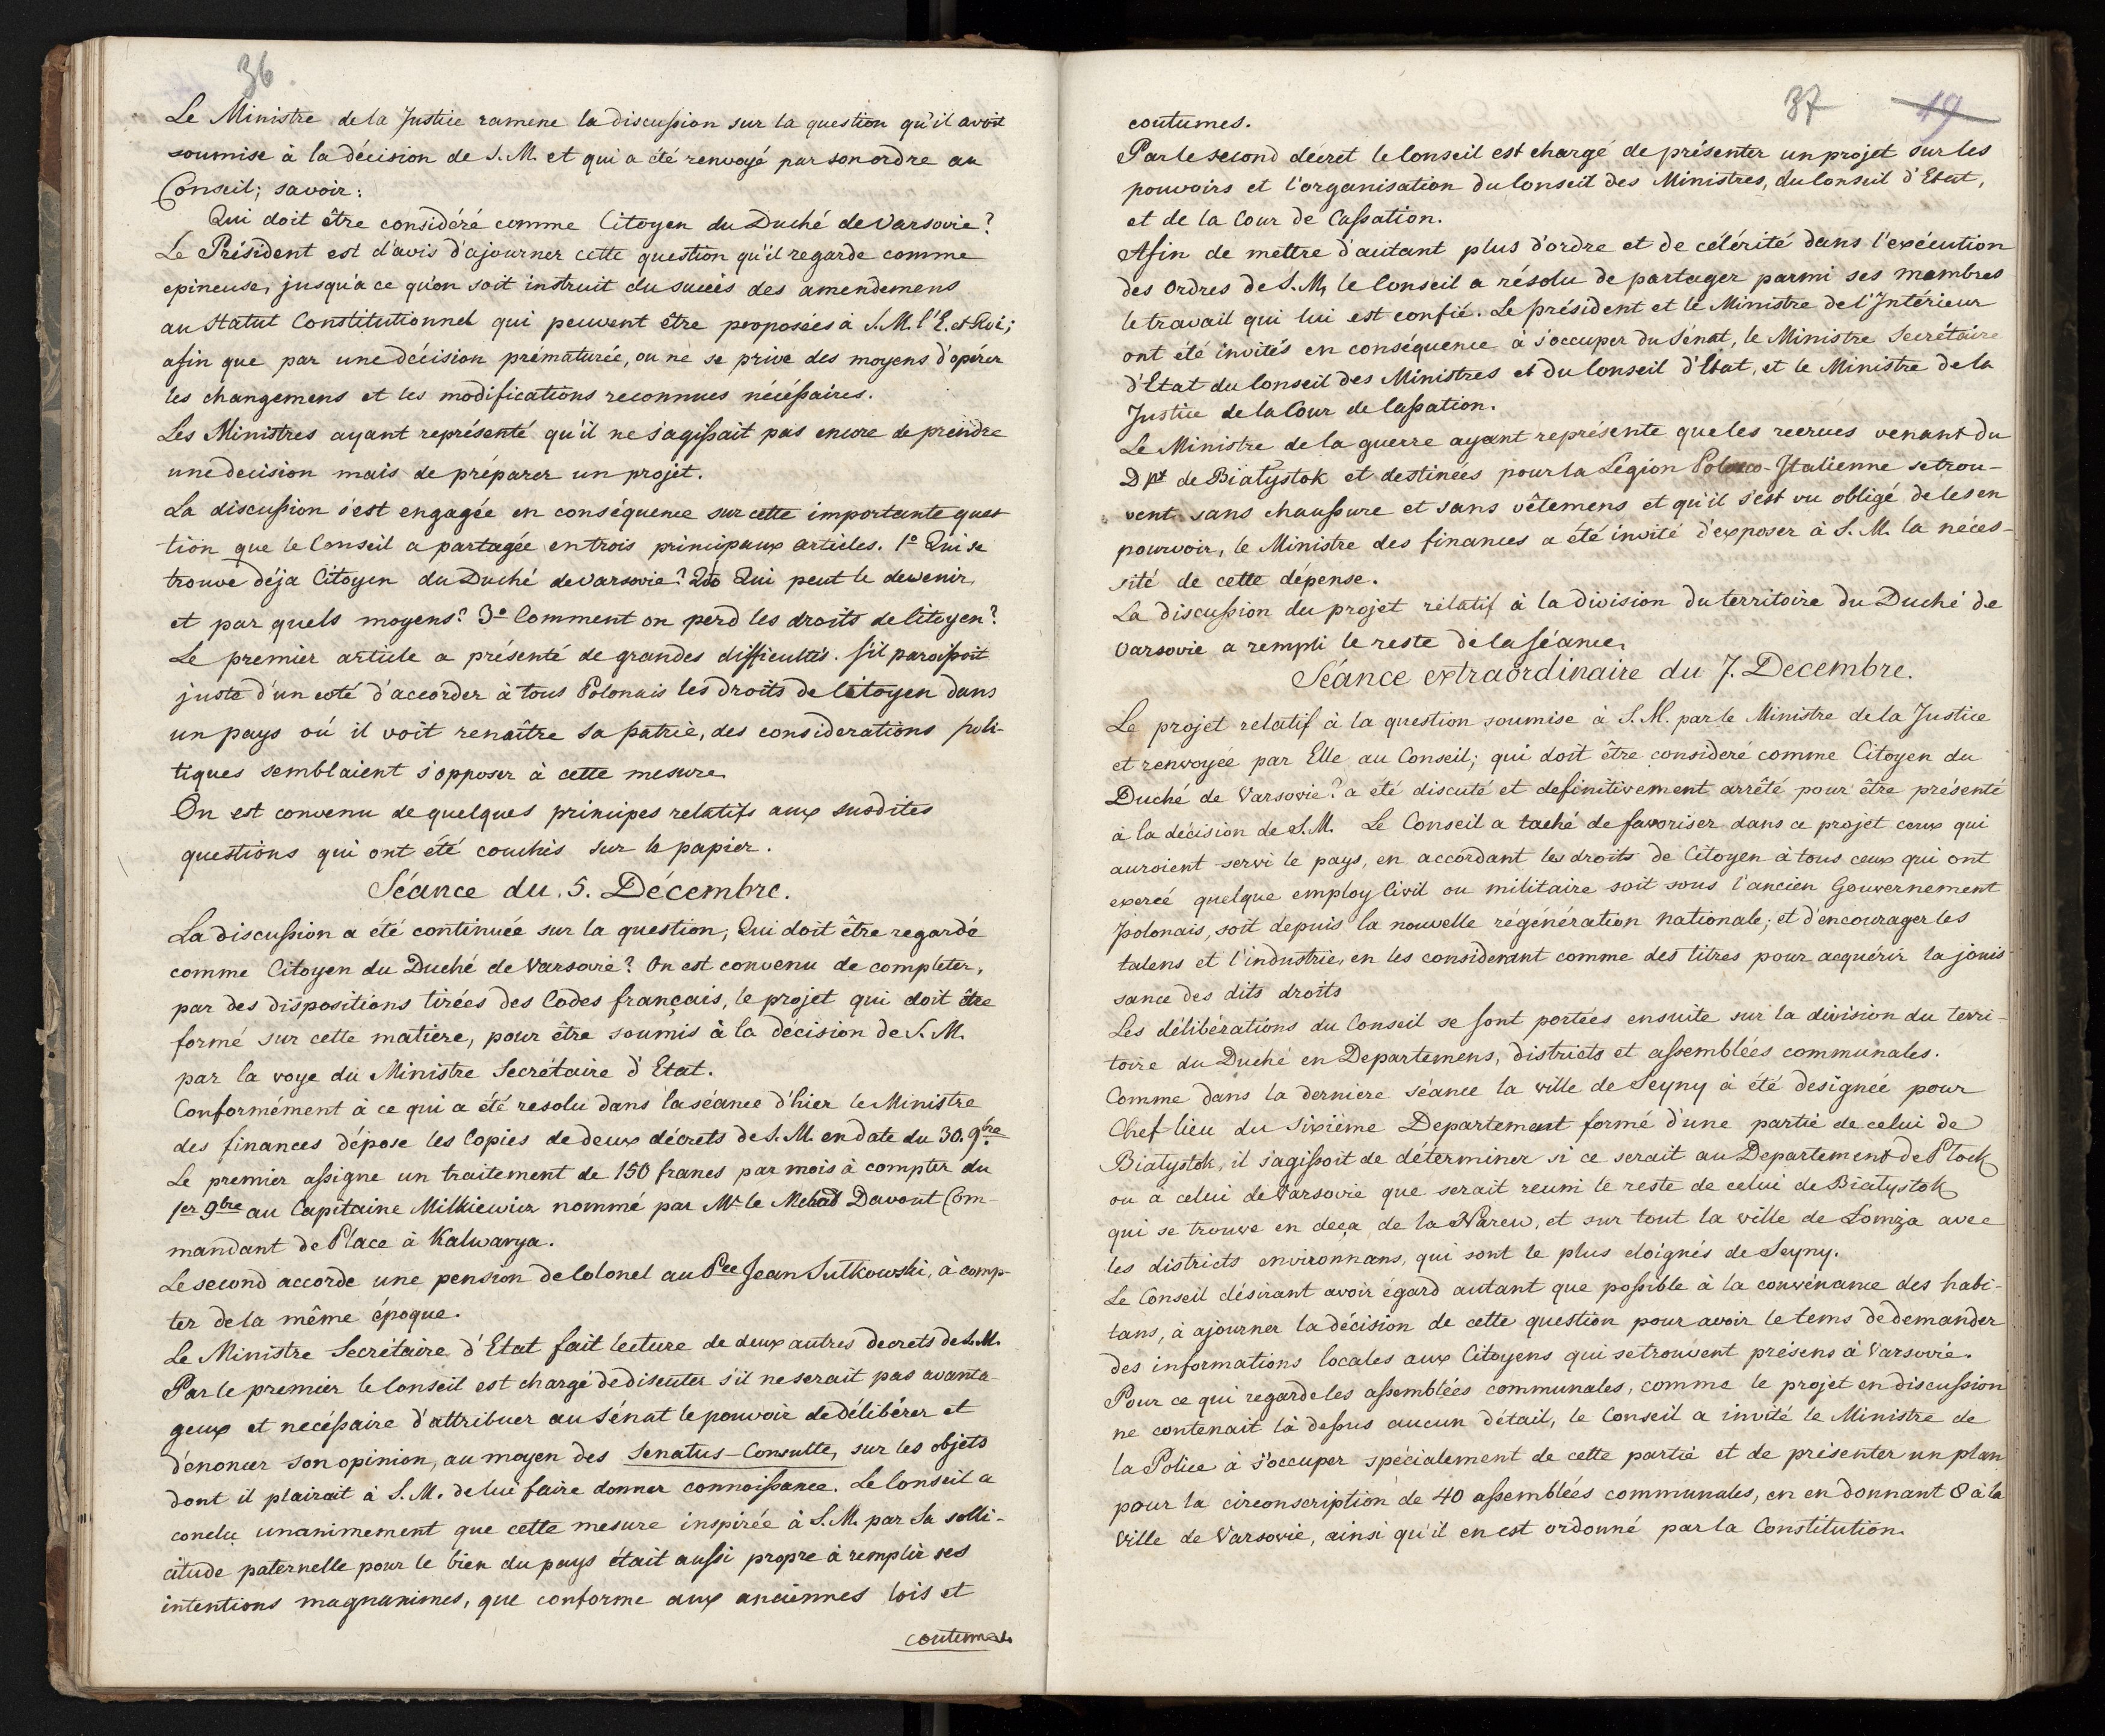 36
Le Ministre de la Justice ramene la discussion sur la question qu'il avoit
soumise à la décision de S. M. et qui a été renvoyé par son ordre au
Conseil; savoir:
Qui doit être considéré comme Citoyen du Duché de Varsovie?
Le Président est d'avis d'ajourner cette question qu'il regarde comme
epineuse, jusqu'à ce qu'on soit instruit du succès des amendemens
au Statut Constitutionnel qui peuvent être proposées à S. M. l'E. et Roi;
afin que par une décision prématurée, on ne se prive des moyens d'opérer
les changemens et les modifications reconnues nécéssaires.
Les Ministres ayant représenté qu'il ne s'agissait pas encore de prendre
une decision mais de préparer un projet.
La discussion s'est engagée en conséquence sur cette importante ques
tion que le Conseil a partagée en trois principaux articles. 1º Qui se
trouve déja Citoyen du Duché de Varsovie? 2do Qui peut le devenir,
et par quels moyens? 3º Comment on perd les droits de Citoyen?
Le premier article a présenté de grandes difficultés. S'il paroissoit
juste d'un coté d'accorder à tous Polonais les droits de Citoyen dans
un pays où il voit renaître sa patrie, des considerations poli-
tiques semblaient s'opposer à cette mesure.
On est convenu de quelques principes relatifs aux susdites
questions qui ont été couchés sur le papier.
Séance du. 5. Décembre.
La discussion a été continuée sur la question; Qui doit être regardé
comme Citoyen du Duché de Varsovie? On est convenu de completer,
par des dispositions tirées des Codes français, le projet qui doit être
formé sur cette matiere, pour être soumis à la décision de S. M.
par la voye du Ministre Secrétaire d'Etat.
Conformément à ce qui a été resolu dans la séance d'hier le Ministre
des finances dépose les Copies de deux décrets de S. M. en date du 30. 9bre
Le premier assigne un traitement de 150 francs par mois à compter du
1er 9bre au Capitaine Milkiewicz nommé par Mr le Mchal Davout Com-
mandant de Place à Kalwarya.
Le second accorde une pension de Colonel au Pce Jean Sulkowski, à comp-
ter de la même époque.
Le Ministre Secrétaire d'Etat fait lecture de deux autres decrets de S. M.
Par le premier le Conseil est chargé de discuter s'il ne serait pas avanta-
geux et necéssaire d'attribuer au Sénat le pouvoir de délibérer et
d'énoncer son opinion, au moyen des Senatus-Consulte, sur les objets
dont il plairait à S. M. de lui faire donner connoissance. Le Conseil a
conclu unanimement que cette mesure inspirée à S. M. par Sa solli-
citude paternelle pour le bien du pays était aussi propre à remplir ses
intentions magnanimes, que conforme aux anciennes lois et
coutumes.
37
19
coutumes.
Par le second décret le Conseil est chargé de présenter un projet sur les
pouvoirs et l'organisation du Conseil des Ministres, du Conseil d'Etat,
et de la Cour de Cassation.
Afin de mettre d'autant plus d'ordre et de célérité dans l'exécution
des ordres de S. M, le Conseil a résolu de partager parmi ses membres
le travail qui lui est confié. Le président et le Ministre de l'Intérieur
ont été invités en conséquence à s'occuper du Sénat, le Ministre Secrétaire
d'Etat du Conseil des Ministres et du Conseil d'Etat, et le Ministre de la
Justice de la Cour de Cassation.
Le Ministre de la guerre ayant représenté que les recrues venant du
Dpt de Białystok et destinées pour la Légion Polacco-Italienne se trou-
vent sans chaussure et sans vêtemens et qu'il s'est vu obligé de les en
pourvoir, le Ministre des finances a été invité d'exposer à S. M. la néces-
sité de cette dépense.
La discussion du projet rélatif à la division du territoire du Duché de
Varsovie a rempli le reste de la séance.
Séance extraordinaire du 7. Decembre.
Le projet relatif à la question soumise à S. M. par le Ministre de la Justice
et renvoyée par Elle au Conseil; qui doit être consideré comme Citoyen du
Duché de Varsovie? a été discuté et definitivement arrêté pour être présenté
à la décision de S. M. Le Conseil a taché de favoriser dans ce projet ceux qui
auroient servi le pays, en accordant les droits de Citoyen à tous ceux qui ont
exercé quelque employ Civil ou militaire soit sous l'ancien Gouvernement
polonais, soit depuis la nouvelle régénération nationale; et d'encourager les
talens et l'industrie, en les considerant comme des titres pour acquérir la jouis
sance des dits droits
Les délibérations du Conseil se sont portées ensuite sur la division du terri-
toire du Duché en Departemens, districts et assemblées communales.
Comme dans la derniere séance la ville de Seyny à été designeé pour
Chef-lieu du Sixième Departement formé d'une partie de celui de
Białystok, il s'agissoit de déterminer si ce serait au Departement de Płock
ou a celui de Varsovie que serait reuni le reste de celui de Białystok
qui se trouve en deça de la Narew, et sur tout la ville de Lomza avec
les districts environnans, qui sont le plus eloignés de Seyny.
Le Conseil désirant avoir égard autant que possible à la convénance des habi-
tans, à ajourner la décision de cette question pour avoir le tems de demander
des informations locales aux Citoyens qui se trouvent présens à Varsovie.
Pour ce qui regarde les assemblées communales, comme le projet en discussion
ne contenait là dessus aucun détail, le Conseil a invité le Ministre de
la Police à s'occuper spécialement de cette partie et de présenter un plan
pour la circonscription de 40 assemblées communales, en en donnant 8 à la
Ville de Varsovie, ainsi qu'il en est ordonné par la Constitution.